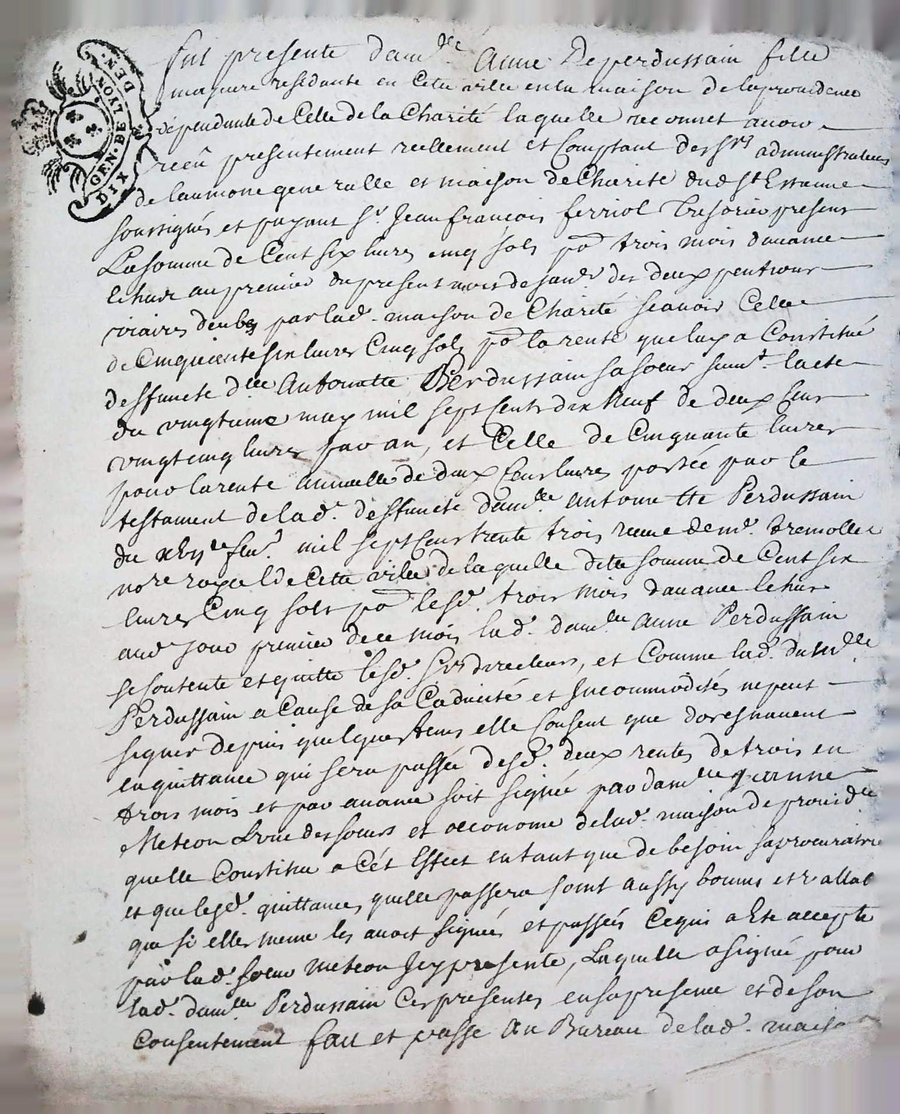 GEN. DE LYON
DIX DEN.
fut presente dam.lle Anne Deperdussain fille
majeure residante en Cette ville en la maison de la providence
dépendante de Celle de la Charité laquelle reconnet avoir
receu presentement reellement et Comptant des Srs administrateurs
de laumone generalle et maison de Charité dud St Estienne
soussignés et payant Sr Jean francois ferriol Tresorier present
La somme de Cent six livres cinq sols pr trois mois davance
échus au premier du present mois de janr. des deux pentions
viaires deubs par lad. maison de Charité scavoir Celle
de Cinquante six livres Cinq sols pr la rente que luy a Constitué
deffuncte dlle Antoinette Perdussain sa soeur suivt. lacte
du vingtieme may mil sept cents dix neuf de deux Cent
vingt cinq livres par an, et Celle de Cinquante livres
pour la rente annuelle de deux Cent livres portée par le
testament de lad. deffuncte dam.lle Antoinette Perdussain
du fevr. mil sept Cent trente trois receu de me. Tremollet
nore royal de Cette ville de laquelle dite somme de Cent six
livres Cinq sols pr lesd. trois mois davance échus
aud jour premier de ce mois lad. dam.lle Anne Perdussain
se contente et quitte lesd. Srs directeurs, et Comme lad. dam.lle
Perdussain a Cause de sa Caducité et Incommodités ne peut
signer depuis quelque tems elle Consent que doresnavant
la quittance qui sera passée desd. deux rentes de trois en
trois mois et par avance soit signée par dam.lle
Meteon Lune des soeurs et oeconome de lad. maison de provid.ce
quelle Constitue a Cét Effect en tant que de besoin sa procuratrice
et que lesd. quittances quelle passera soint aussy bonnes et vallables
que si elle meme les avoit signées et passées Ce qui a Eté accepté
par lad. soeur Meteon Icy presente, Laquelle a signée pour
lad. dam.lle Perdussain Ces presentes en sa presence et de son
Consentement fait et passé au Bureau de lad. maison